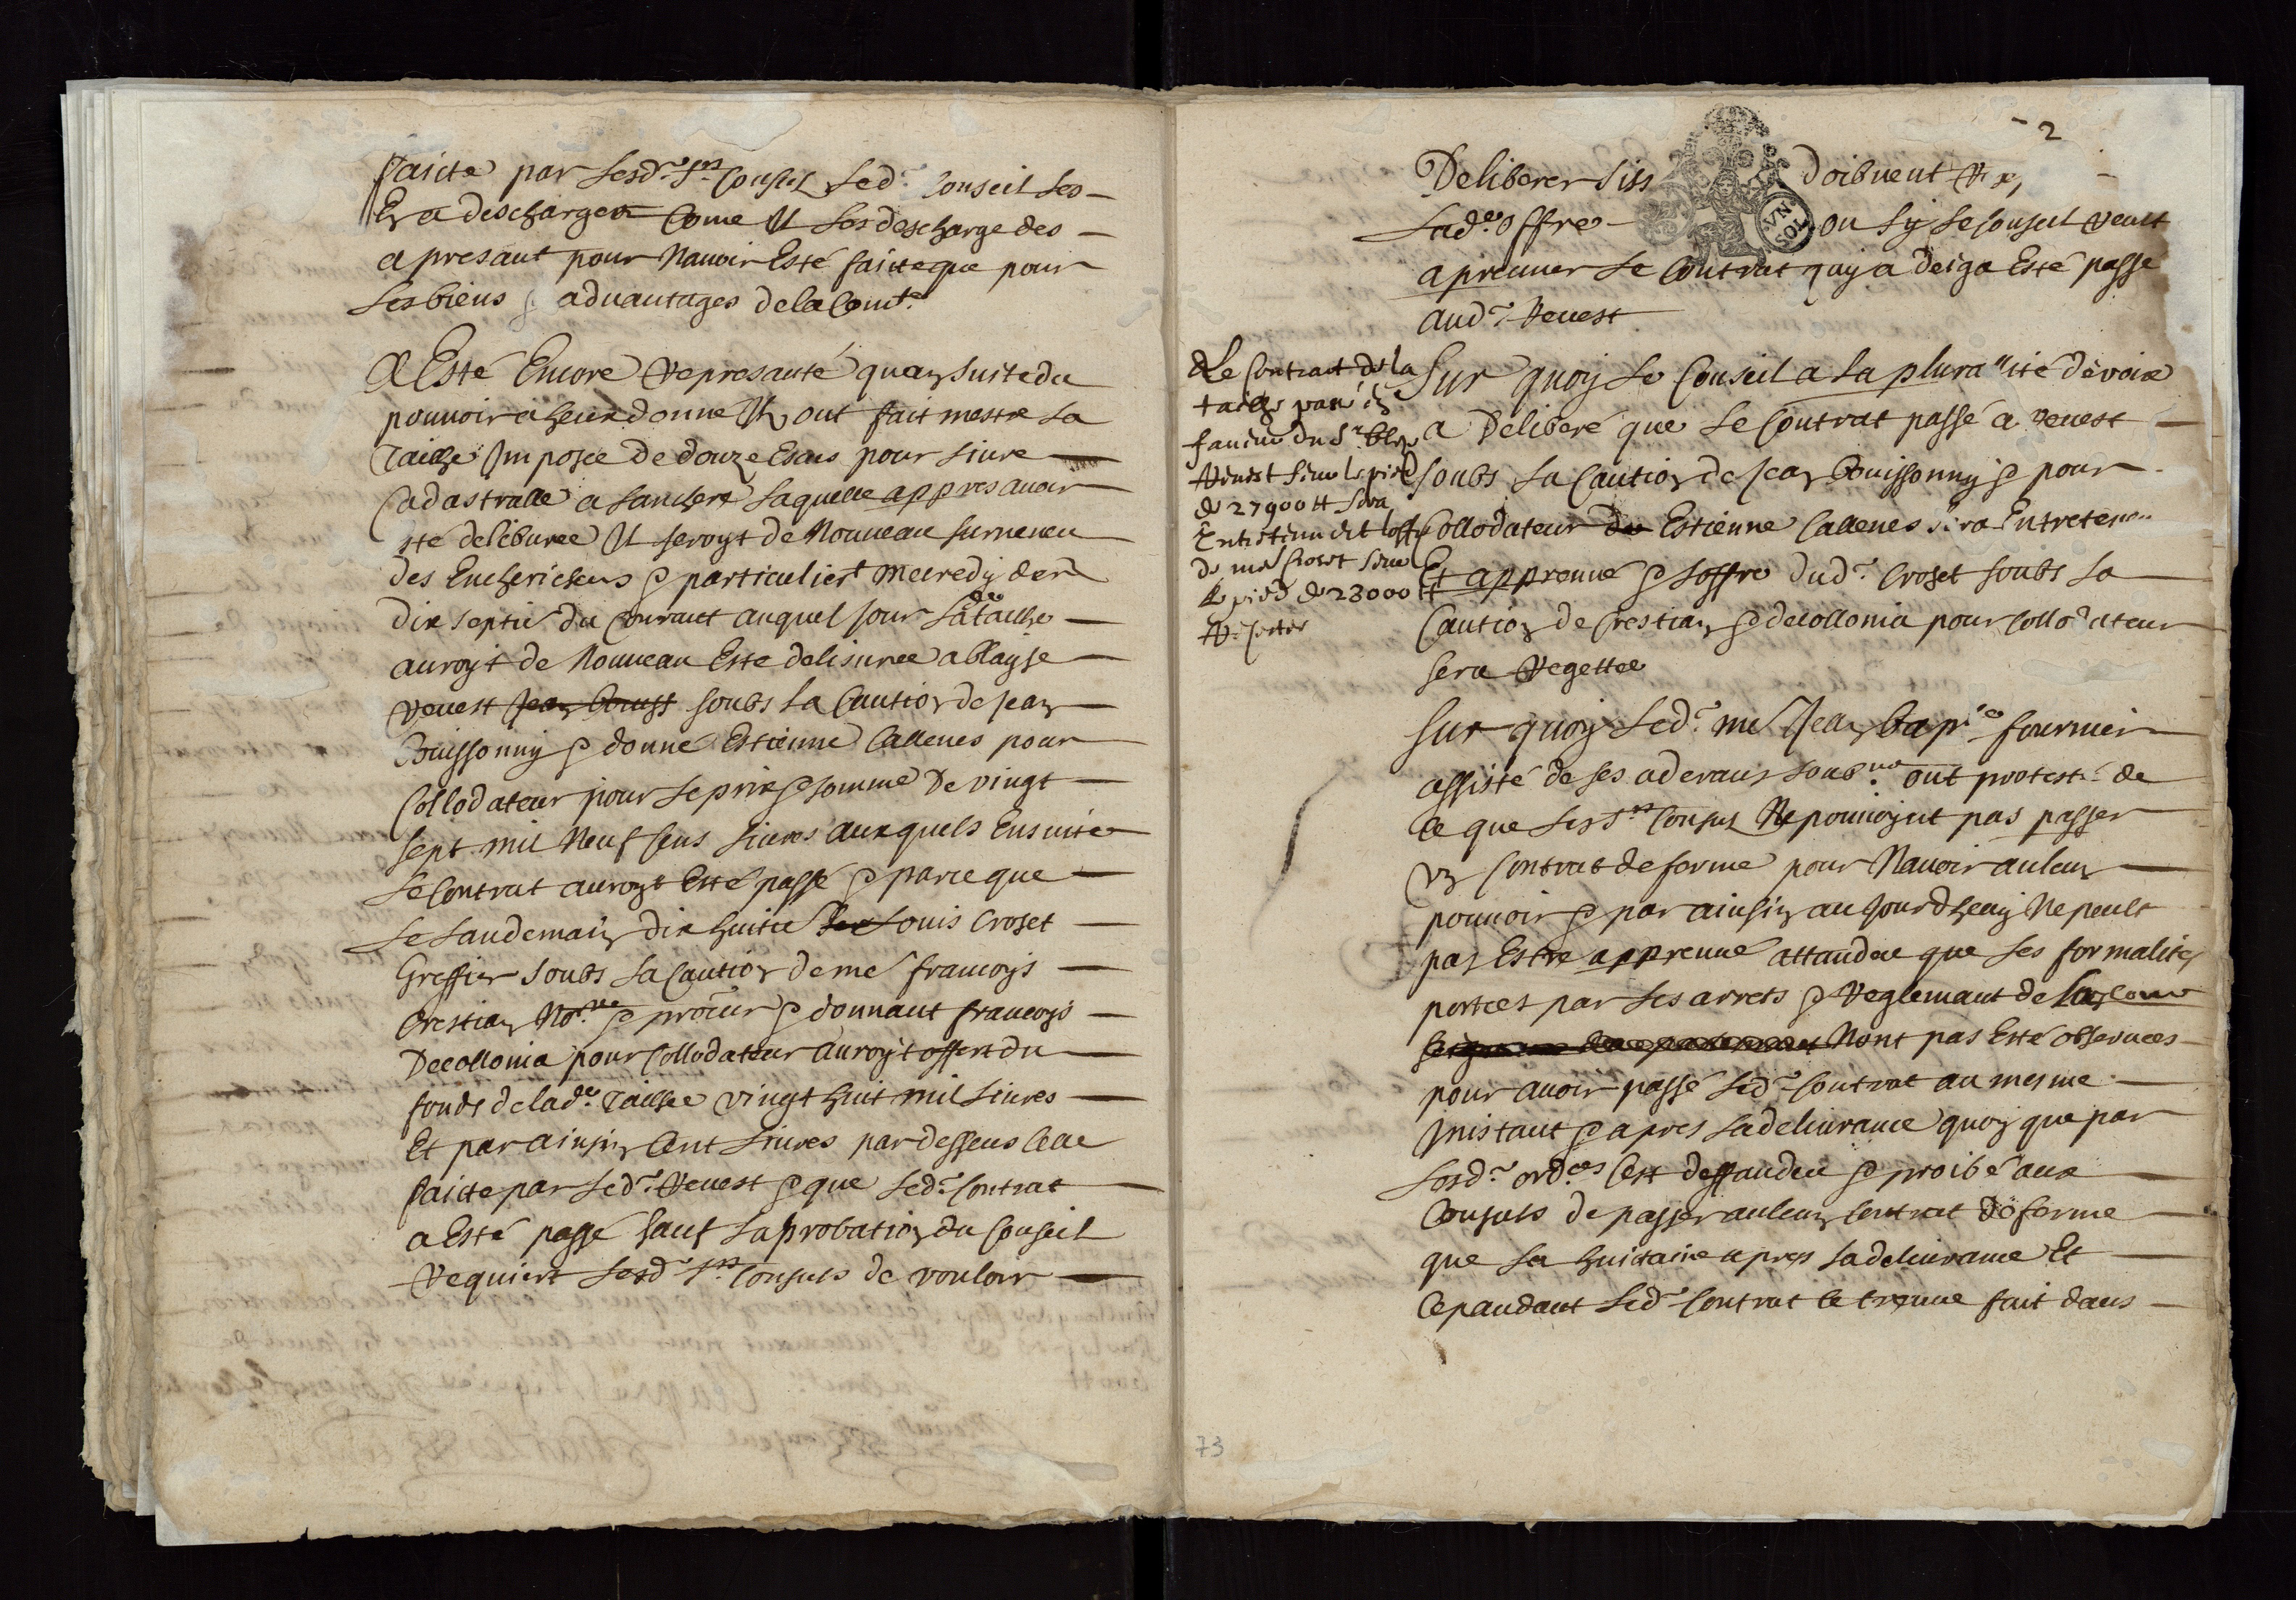 faicte par lesd. srs Consulz led. Conseil les
En a deschargea Come Il les descharge des
a presant pour Navoir Esté faicte que pour
les biens & aduantages de la Comte
A Esté Encore represanté quen suitte du
pouuoir a heux donne Ilz ont fait mestre La
Tailhe Imposee De douze Escus pour liure
Cadastralle a lanchere laquelle appres auoir
sté deliburee Il seroyt de Nouueau suruenu
des Encherisseurs & particulierᵗ mecredy der
dix septie du Courant auquel jour lade tailhe
auroyt de Nouueau Este deliuree a blayse
reuest soubs la Caution de jean
Bouissonny & donne Estienne Callenes pour
Collodateur pour le prix & somme De vingt
sept mil Neuf Cens liures auxquels Ensuitte
le Contrat auroyt Esté passé & parce que
le landemain dix huitie Louis Croset
Greffier soubs la Caution de me francoys
Crestian Nore & procur & donnant francoys
Decollonia pour Collodateur auroyt offert du
fonds de lade. Tailhe vingt huit mil liures
Et par ainsin Cent liures par dessus Celle
faicte par led. Reuest & que led. Contrat
a Esté passé sauf laprobation du Conseil
Requiert lesd srs Consuls de vouloir
2
Deliberer sils doibuent
lade offre ou sy le Conseil veult
aprouuer le Contrat quy a deiga Esté passé
aud. Reuest
Le Contract de la
tailhe passé En
faueur du sr
Reuest sur le pied
de 27900 tt sera
Entretenu et loffre
de me Croset sur
le pied de 28000 tt
Rejettée
Sur quoy le Conseil a la pluralité de voix
a Deliberé que le Contrat passé a reuest
soubs la Caution de Jean Bouissonny & pour
Collodateur Estienne Callenes sera Entretenu
Et approuué & loffre dud. Croset soubs la
Caution de Crestian & decollonia pour Collodateur
sera Regettee
Sur quoy led. me Jean bapte fournier
assisté de ses aderans soubnes ont protesté de
Ce que les srs Consulz Ne pouuoyent pas passer
Un Contrat de ferme pour Nauoir aulcun
pouuoir & par ainsin au Jourdhuy Ne peult
pas Estre approuué attandeu que les formalites
portees par les arrets & Reglemant de la Cour
Nont pas Esté obseruees
pour auoir passé led. Contrat au mesme
Jnistant & apres la deliurance quoy que par
lesd. ordces Cest deffandeu & proibé aux
Consuls de passer aulcun Contrat de ferme
que la huictaine apres la deliurance Et
Cepandant led. Contrat Ce treuue fait dans
73